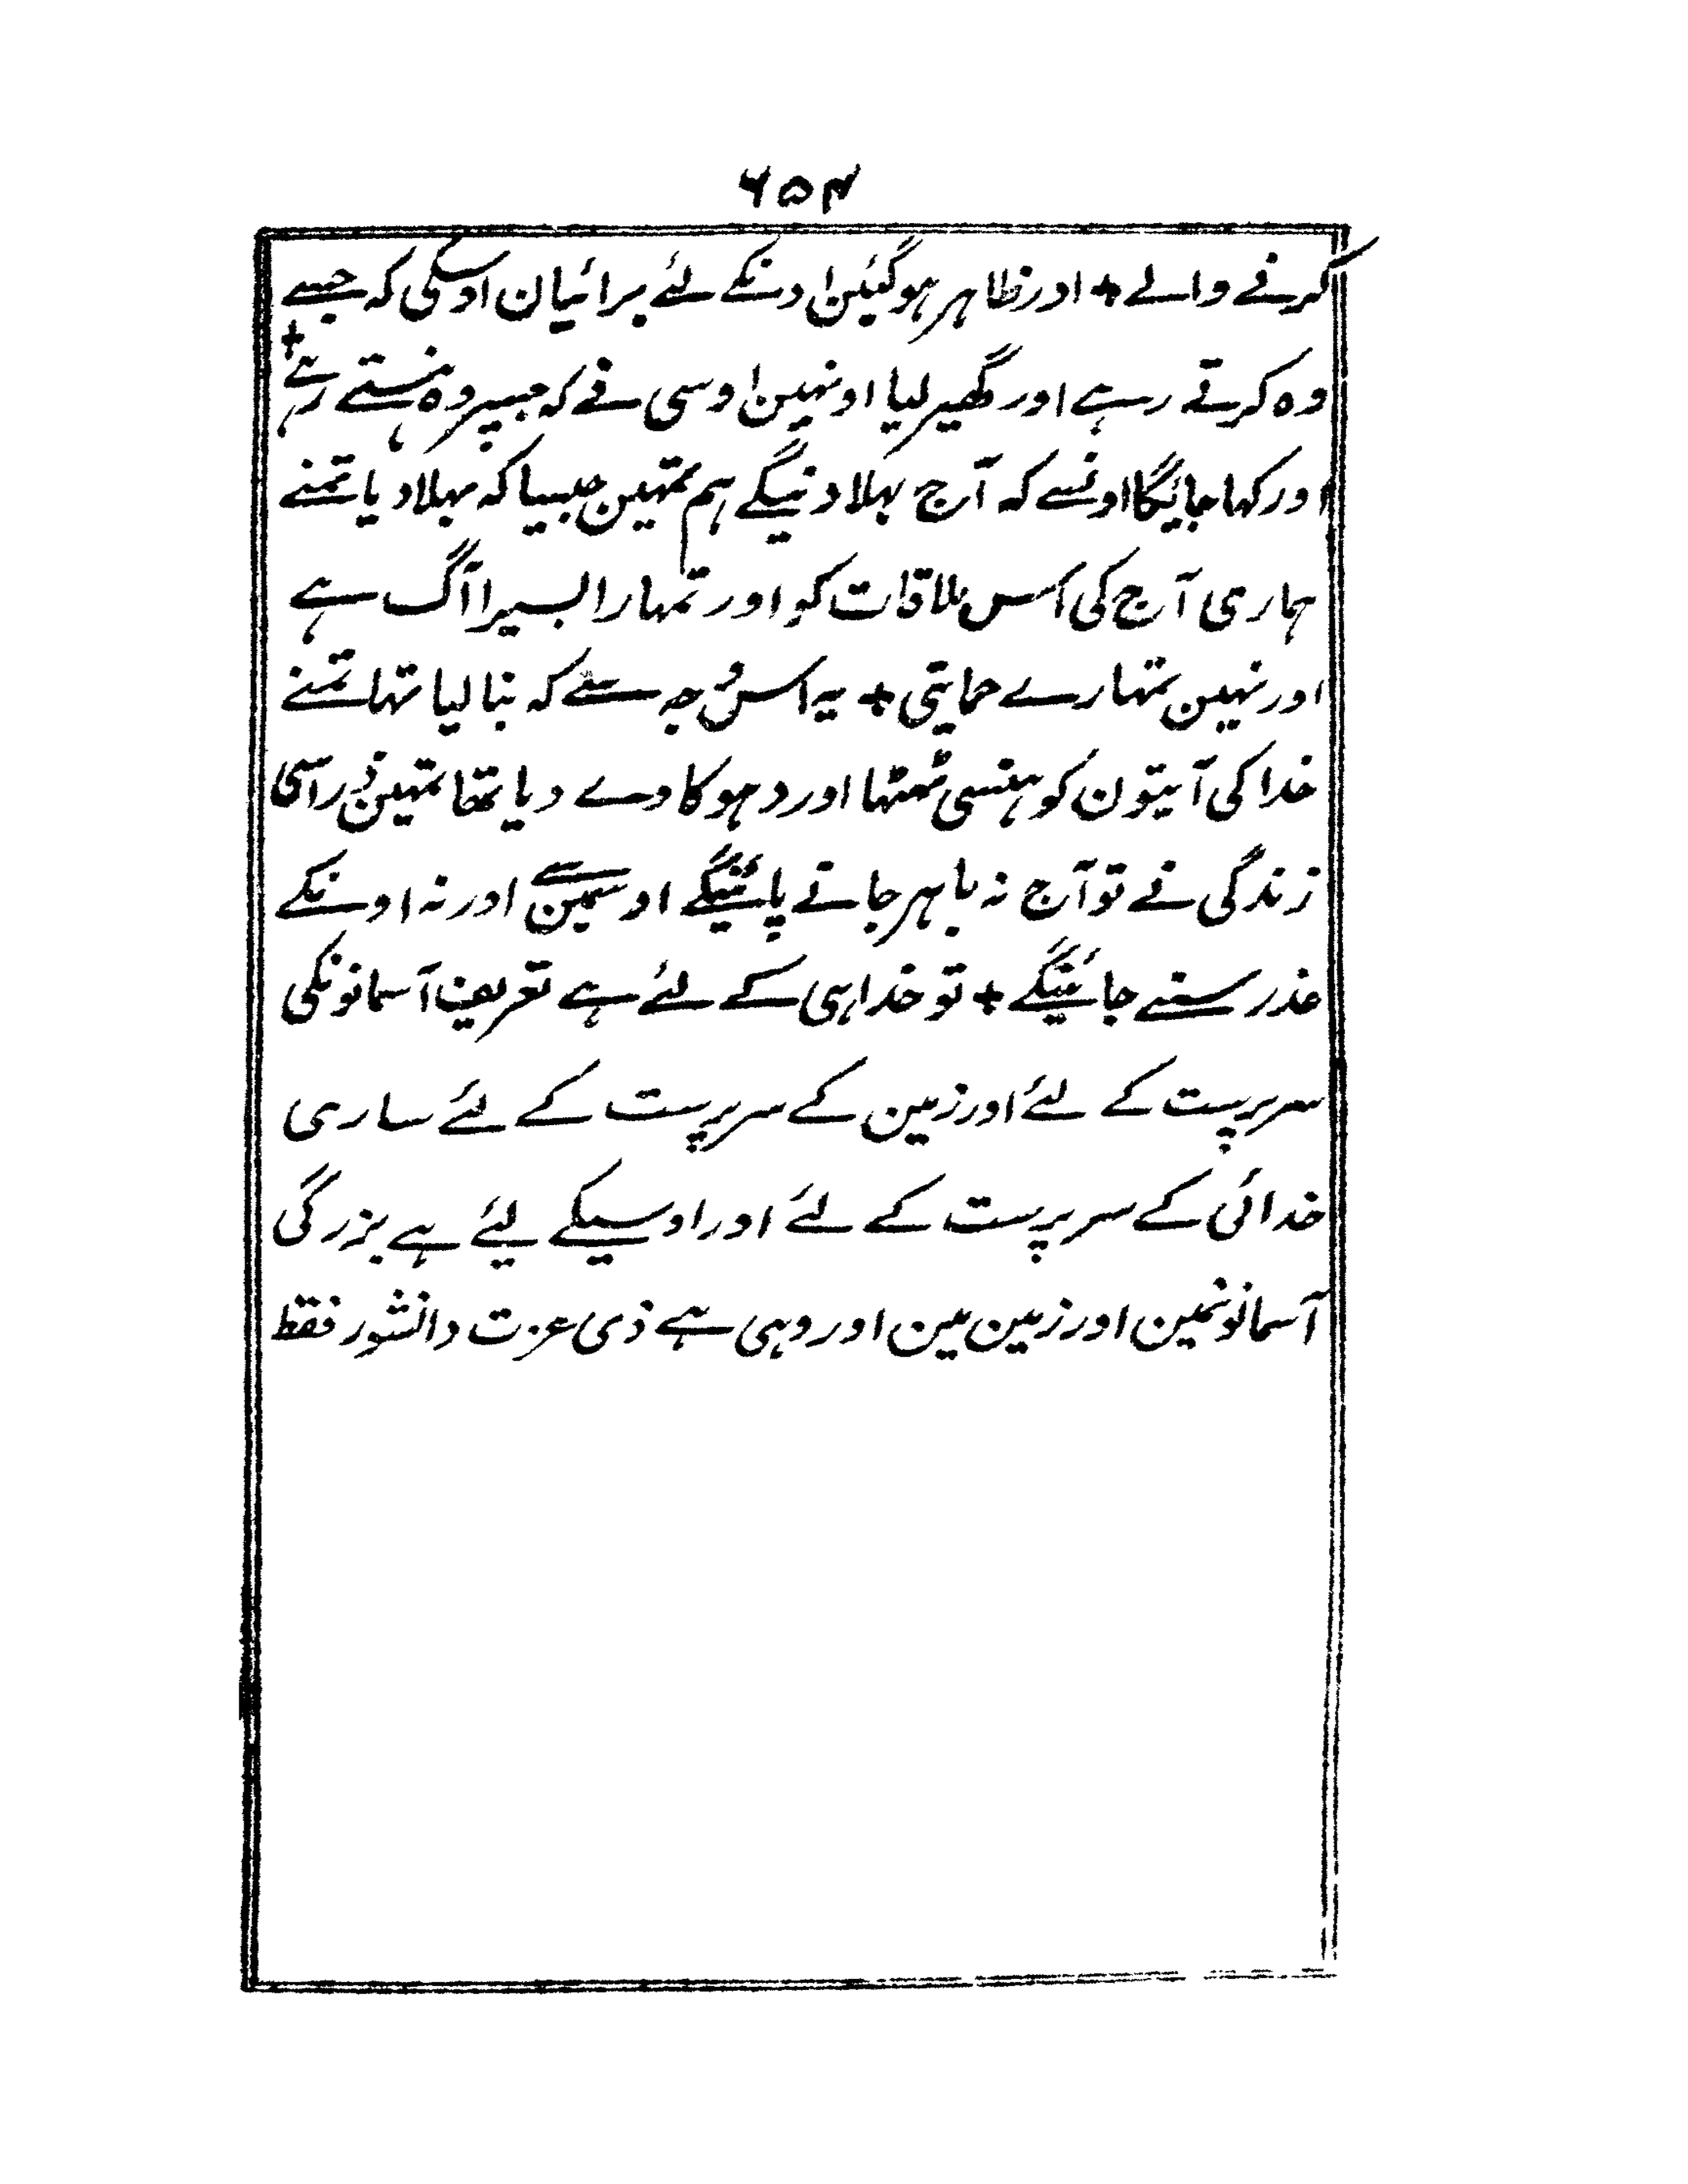 ۶۵۴
کرنے والے + اور ظاہر ہوگئین اونکے لئے برائیان اوسکی کہ جسے
وہ کرتے رہے اور گھیر لیا اونہین اوسی نے کہ جسپر وہ ہنستے رہے +
اور کہا جائیگا اونسے کہ آج بہلا دینگے ہم تمہین جیسا کہ بہلا دیا تمنے
ہماری آج کی اس ملاقات کو اور تمہارا بسیرا آگ ہے
اور نہین تمہارے حمایتی + یہ اس وجہ سے کہ بنا لیا تہا تمنے
خدا کی آیتون کو ہنسی ٹھٹھا اور دہوکا دے دیا تھا تمہین ذراسی
زندگی نے تو آج نہ باہر جانے پائینگے اوسمین سے اور نہ اونکے
عذر سنے جائینگے + تو خدا ہی کے لئے ہے تعریف آسمانونکی
سرپرست کے لئے اور زمین کے سرپرست کے لئے ساری
خدائی کے سرپرست کے لئے اور اوسیکے لیئے ہے بزرگی
آسمانونمین اور زمین مین اور وہی ہے ذی عزت دانشور فقط